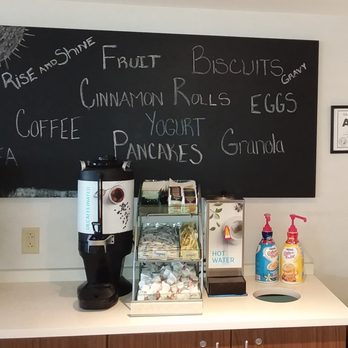 RISE AND SHINE
FRUIT
BISCUITS
GRAVY
CINNAMON ROLLS
EGGS
COFFEE
YOGURT
PANCAKES
GRANOLA
DECAFFEINATED
HOT
WATER